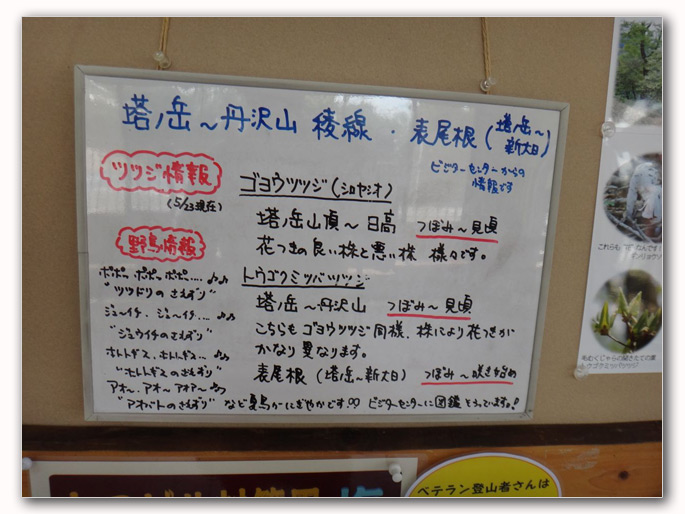 塔ノ岳～丹沢山 稜線・表尾根(塔ノ岳～新大日)
ビジターセンターからの
情報です
ツツジ情報
(5/23現在)
ゴヨウツツジ(シロヤシオ)
塔ノ岳山頂～日高 つぼみ～見頃
花つきの良い株と悪い株 様々です。
トウゴクミツバツツジ
塔ノ岳～丹沢山 つぼみ～見頃
こちらもゴヨウツツジ同様、株により花つきが
かなり異なります。
表尾根(塔ノ岳～新大日) つぼみ～咲き始め
野鳥情報
ポポッ、ポポッ、ポポッ…♪♪
"ツツドリのさえずり"
ジューイチ、ジューイチ…♪
"ジュウイチのさえずり"
ホトトギス、ホトトギス…♪
"ホトトギスのさえずり"
アオー、アオー アオアー♪
"アオバトのさえずり" など夏鳥がにぎやかです♡♡ ビジターセンターに図鑑そろっています。!
これらも
毛むくじゃらの
トウゴクミツバツツジ
ベテラン登山者さんは